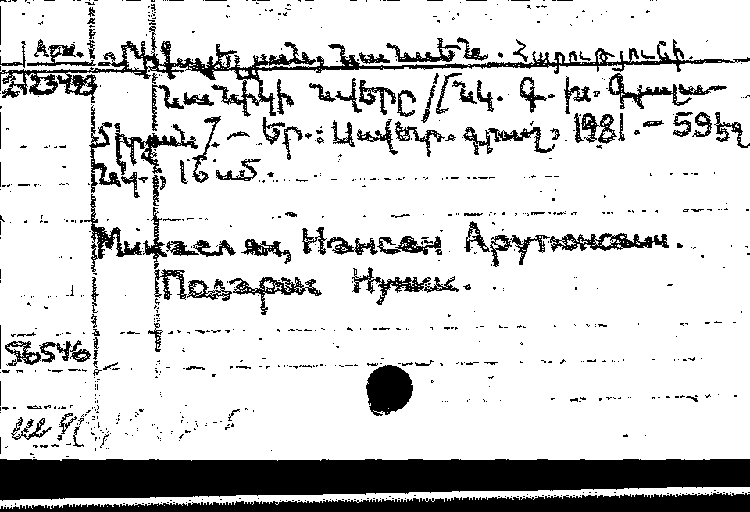 Арм. Միքայելյան, Նանսեն. Հարությունի.
2123493 Նանիկի նվերը /[Նկ. Գ. Խ. Գյուլա-
միրյան]. — Եր.: Սովետ. գրող, 1981. — 59 էջ
նկ., 16 սմ.
Микаелян, Нансен Арутюнович.
Подарок Нуник.
56546